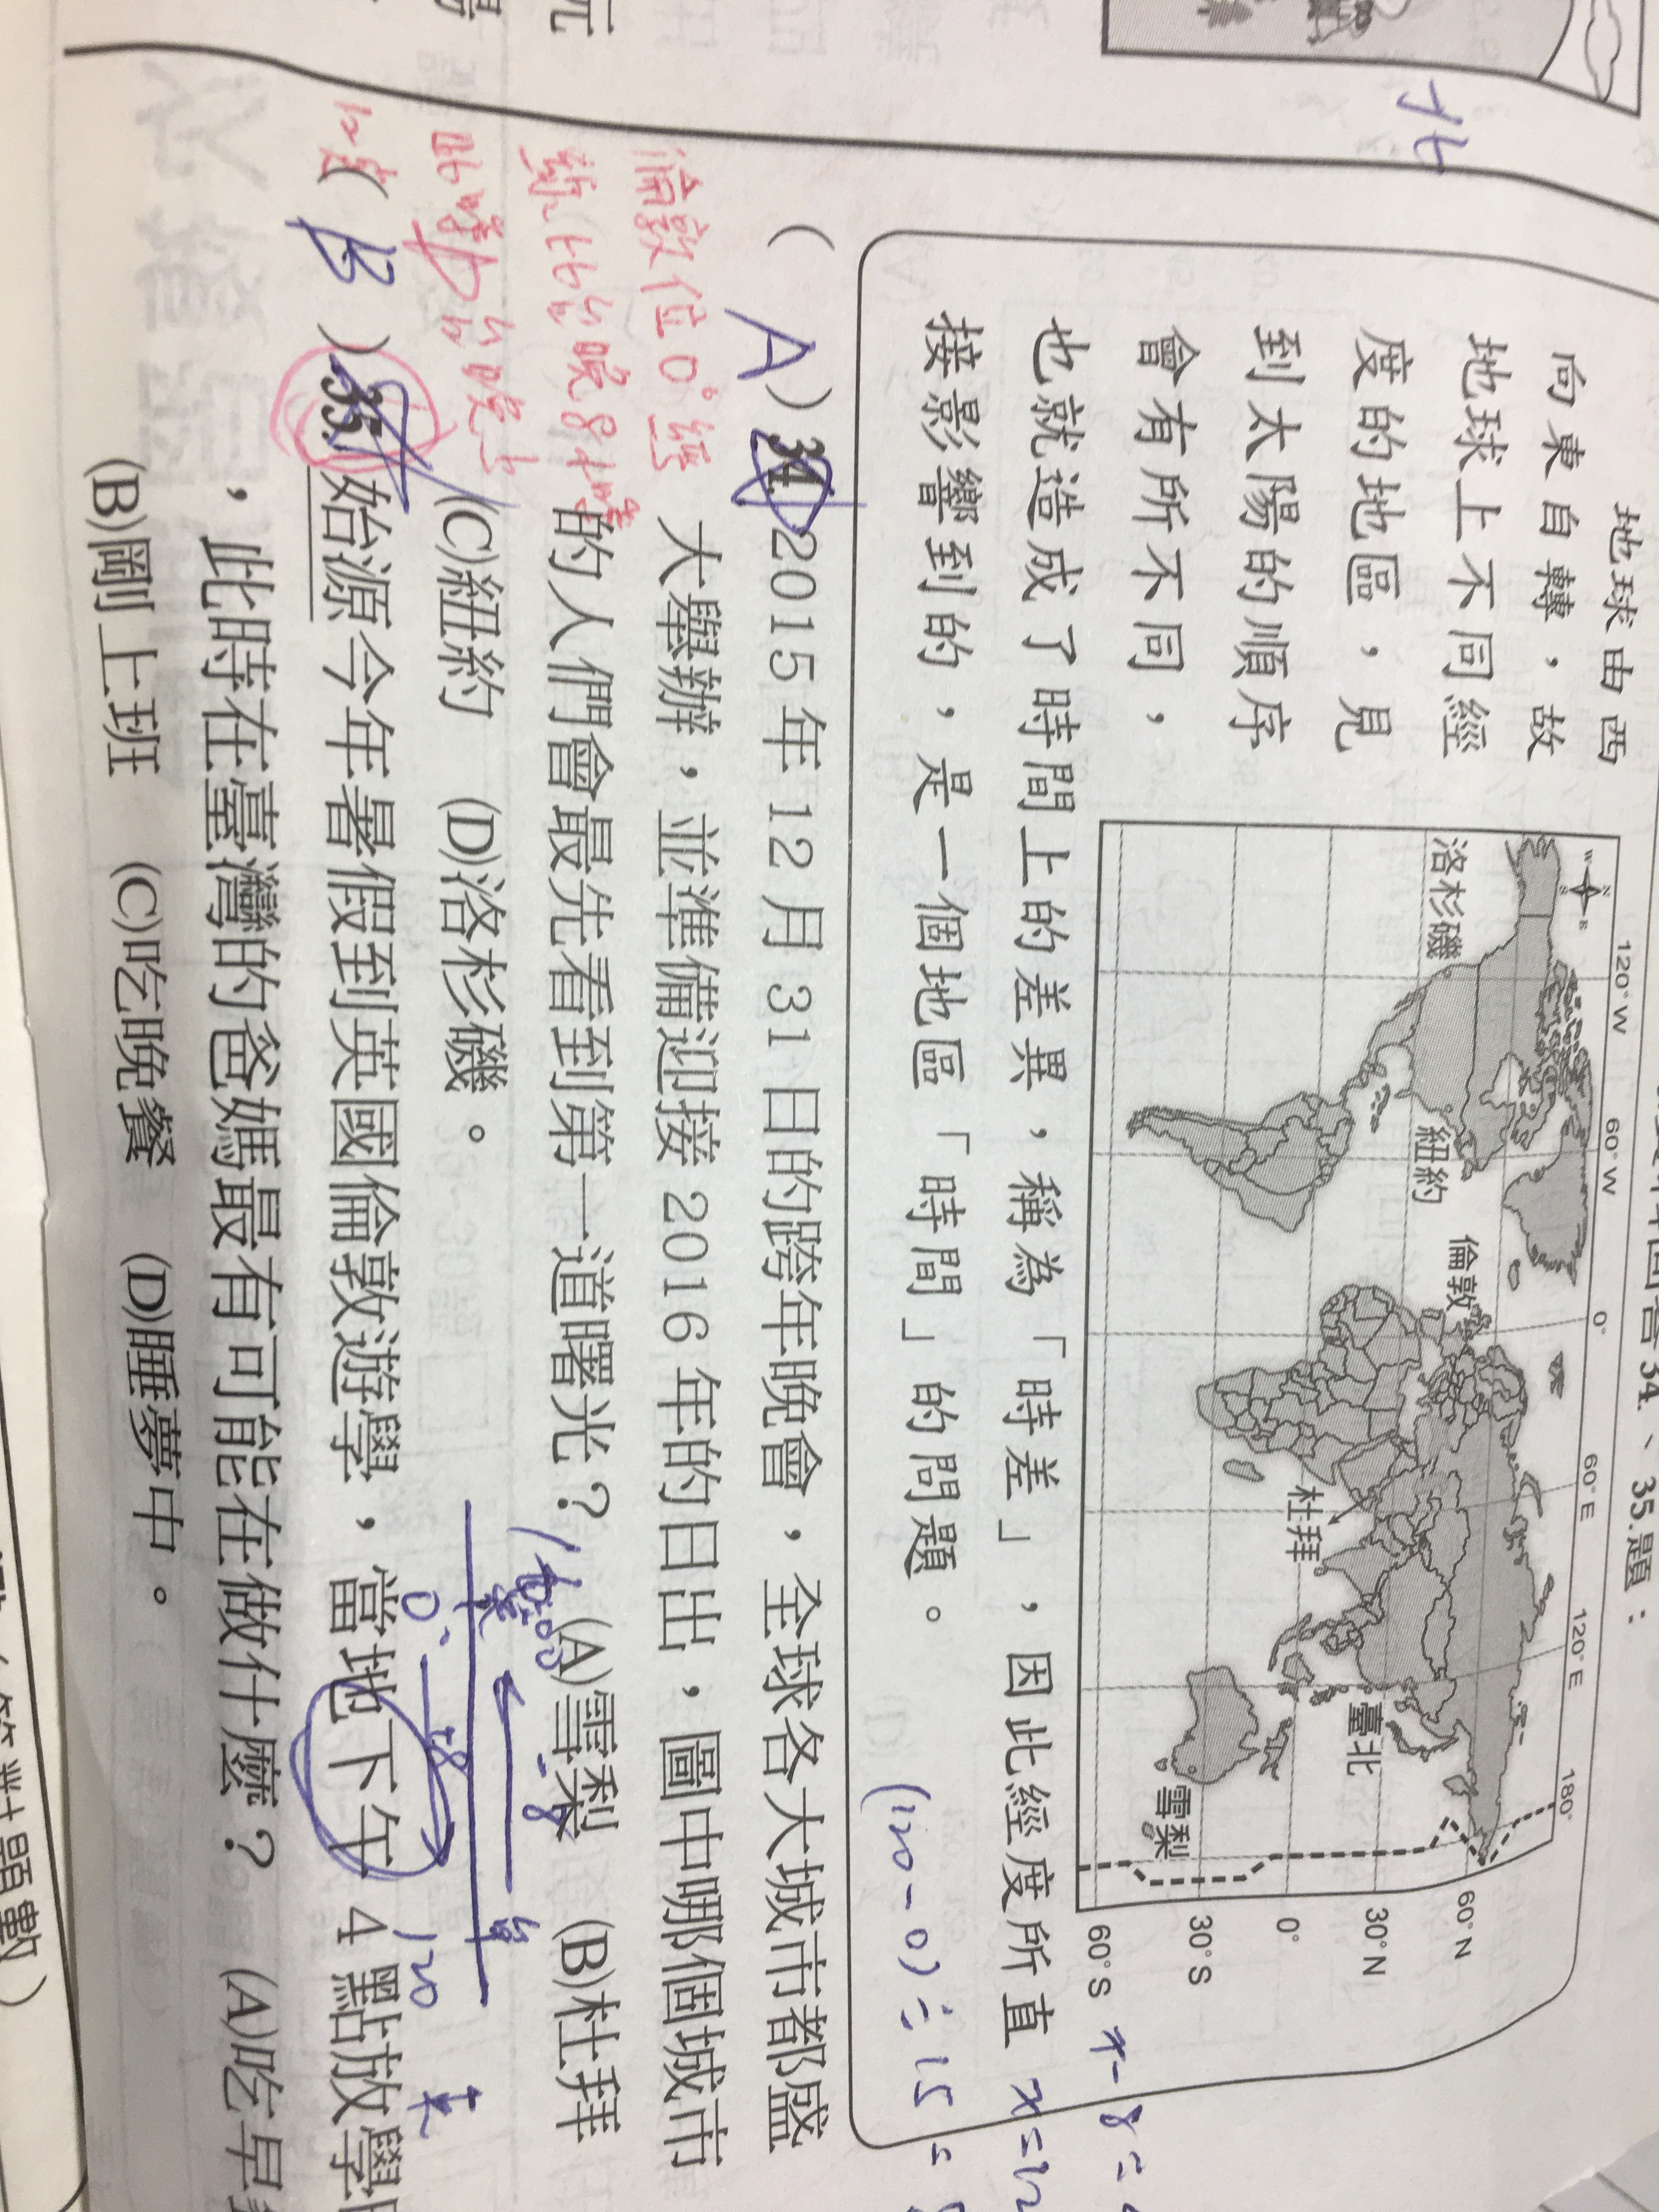 34.、35.題：
地球由西
向東自轉，故
地球上不同經
度的地區，見
到太陽的順序
會有所不同，
也就造成了時間上的差異，稱為「時差」，因此經度所直
接影響到的，是一個地區「時間」的問題。
120°W 60°W 0° 60°E 120°E 180°
N
W E
S
洛杉磯
紐約
倫敦
杜拜
臺北
雪梨
60°N
30°N
0°
30°S
60°S
(120-0)÷15=
(A)34.2015年12月31日的跨年晚會，全球各大城市都盛
大舉辦，並準備迎接2016年的日出，圖中哪個城市
的人們會最先看到第一道曙光？ (A)雪梨 (B)杜拜
(C)紐約 (D)洛杉磯。
倫敦位0°經
-8
0° +8 120 東
(B)35.始源今年暑假到英國倫敦遊學，當地下午4點放學
，此時在臺灣的爸媽最有可能在做什麼？ (A)吃早
(B)剛上班 (C)吃晚餐 (D)睡夢中。